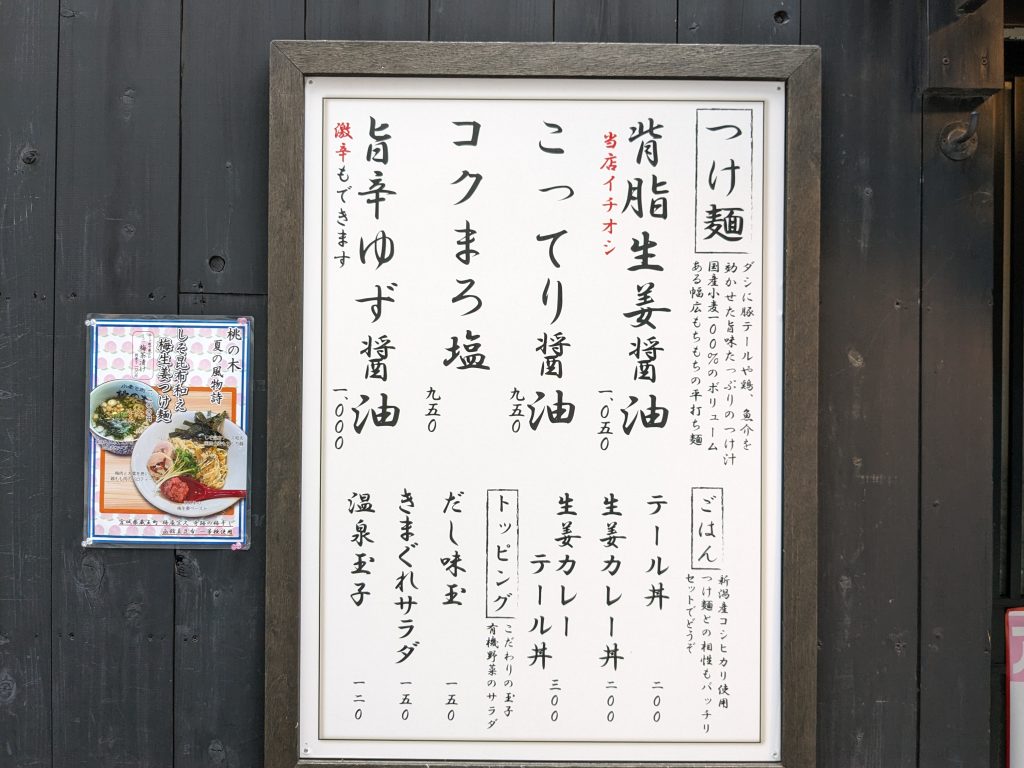 つけ麺
ダシに豚テールや鶏、魚介を
効かせた旨味たっぷりのつけ汁
国産小麦100%のボリューム
ある幅広もちもちの平打ち麺
背脂生姜醤油
一、〇五〇
当店イチオシ
こってり醤油
九五〇
コクまろ塩
九五〇
旨辛ゆず醤油
一、〇〇〇
激辛もできます
ごはん
新潟産コシヒカリ使用
つけ麺との相性もバッチリ
セットでどうぞ
テール丼
二〇〇
生姜カレー丼
二〇〇
生姜カレー
テール丼
三〇〇
トッピング
こだわりの玉子
有機野菜のサラダ
だし味玉
一五〇
きまぐれサラダ
一五〇
温泉玉子
一二〇
桃の木
夏の風物詩
しそ昆布和え
梅生姜つけ麺